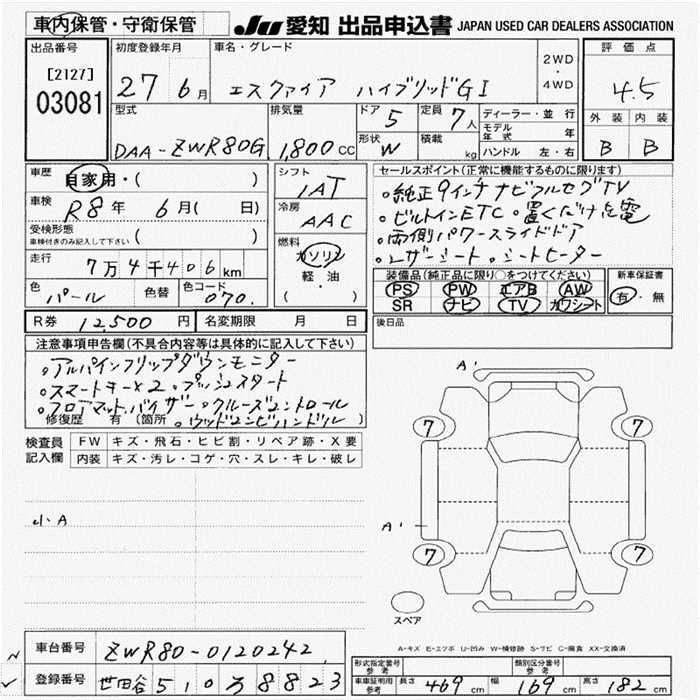 車内保管・守衛保管 JU 愛知 出品申込書 JAPAN USED CAR DEALERS ASSOCIATION
出品番号 初度登録年月 車名・グレード 評価点
[2127] 27 6月 エスクァイア ハイブリッドGI 2WD・4WD 4.5
03081
型式 排気量 ドア 5 定員 7人 ディーラー・並行 外装 内装
モデル年式 年
DAA-ZWR80G 1,800cc 形状 W 積載 kg ハンドル 左・右 B B
車歴 自家用・( ) シフト IAT セールスポイント(正常に機能するものに限ります)
。純正9インチナビフルセグTV
車検 R8年 6月( 日) 冷房 AAC 。ビルトインETC 。置くだけ充電
受検形態 車検付きのみ記入して下さい ( ) 。両側パワースライドドア
走行 7万4千406km 燃料 ガソリン 軽・油 ( ) 。レザーシート 。シートヒーター
装備品(純正品に限り○をつけてください) 新車保証書
色 パール 色替 色コード 070. PS PW エアB AW 有・無
SR ナビ TV カワシート
R券 12,500円 名変期限 月 日 後日品
注意事項申告欄(不具合内容等は具体的に記入して下さい)
。アルパインフリップダウンモニター
。スマートキー×2 。プッシュスタート
。フロアマット、バイザー 。クルーズコントロール
修復歴 有(箇所 。ウッドコンビハンドル)
検査員記入欄 FW キズ・飛石・ヒビ割・リペア跡・X要
内装 キズ・汚レ・コゲ・穴・スレ・キレ・破レ
A'
7 7
小・A
A'
7 7
スペア
A-キズ E-エクボ U-凹み W-補修跡 S-サビ C-腐食 XX-交換済
車台番号 ZWR80-0120242
登録番号 世田谷 510 ろ 8823
形式指定番号 参考 類別区分番号 参考
車車証明用 参考 長さ 469cm 幅 169cm 高さ 182cm